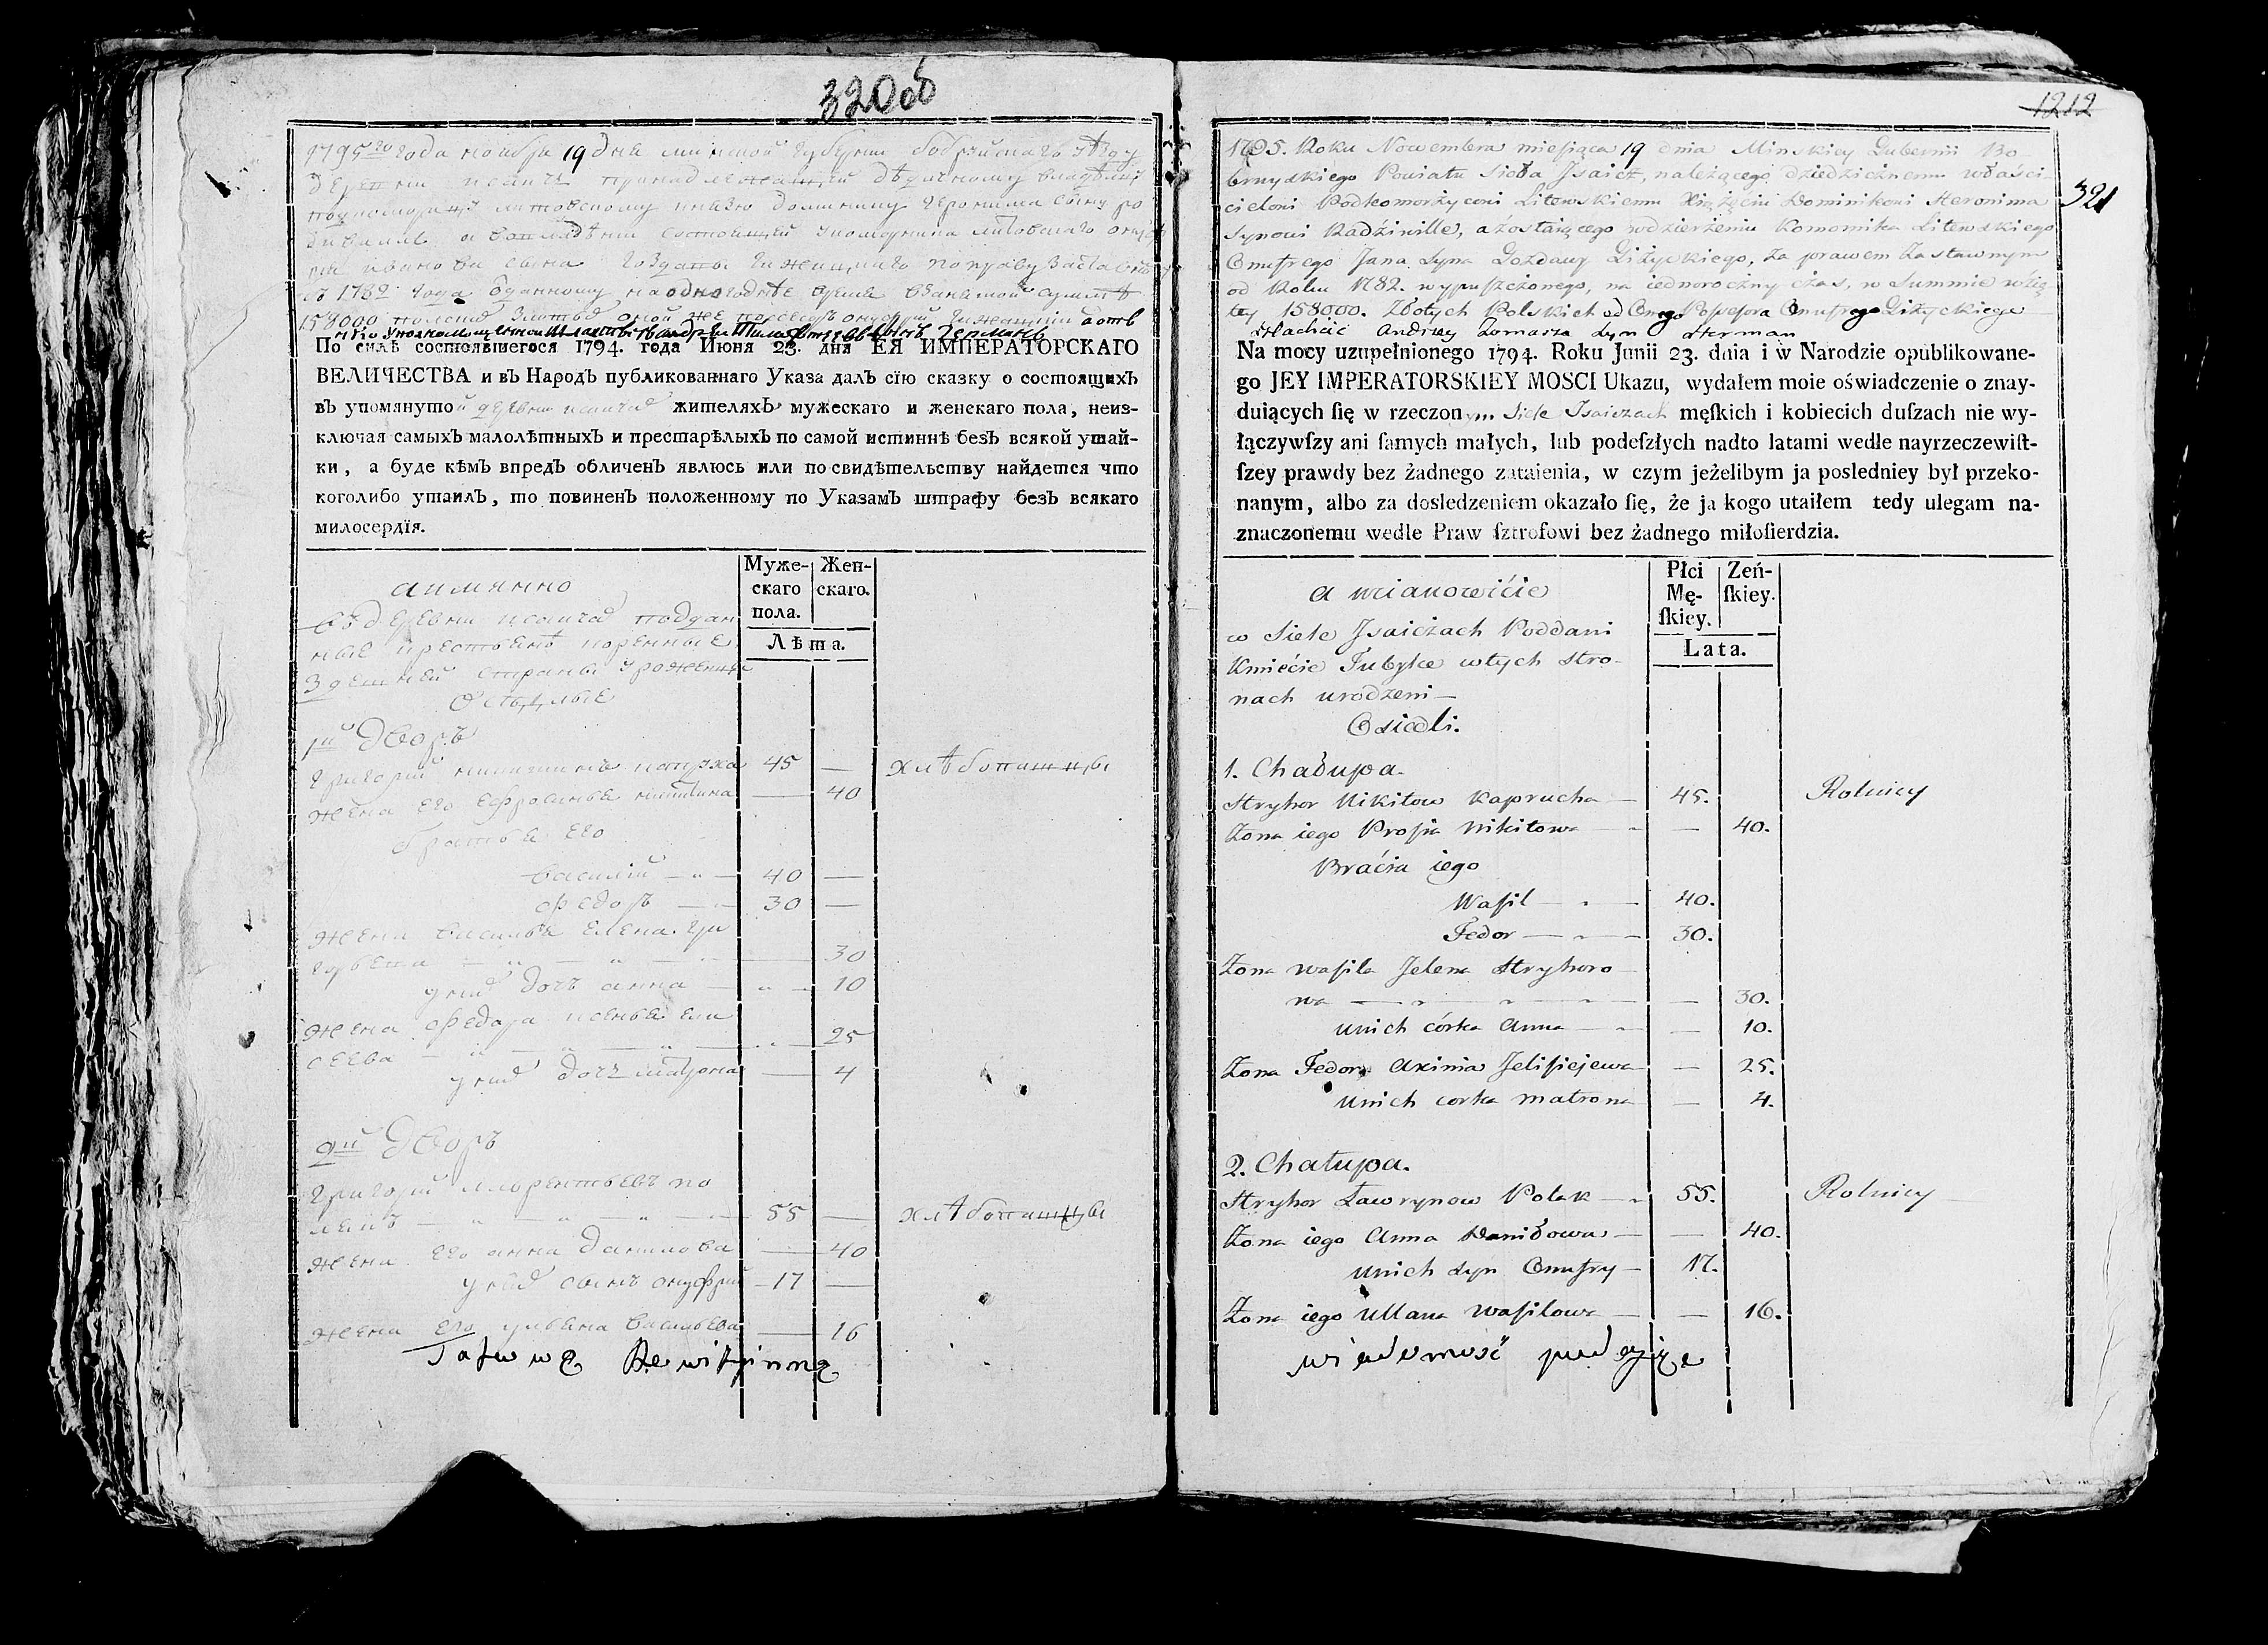 320об
1795го года ноября 19 дня минской губернии бобруйскаго уѣзду
деревни исаичъ принадлежащей дѣдичному владѣлцу
подкоморицу литовскому князю доминику иеронима сыну ра
дивиллѣ а во владѣнии состоящей коморника литовскаго онуф
рия иванова сына гоздавы гижицкаго по праву заставному
съ 1782 года данному на одногоднѣе время в занятой суммѣ
158000 полских злотых оной же посесоръ онуфрий гижицкий а отъ
него уполномоченной шляхтичь андрей сынъ Германъ
По силѣ состоявшегося 1794. года Июня 23. дня ЕЯ ИМПЕРАТОРСКАГО
ВЕЛИЧЕСТВА и въ Народъ публикованнаго Указа далъ сїю сказку о состоящихъ
въ упомянутой деревни исаичах жителяхъ мужескаго и женскаго пола, неиз-
ключая самыхъ малолѣтныхъ и престарѣлыхъ по самой истиннѣ безъ всякой утай-
ки, а буде кѣмъ впредъ обличенъ явлюсь или по свидѣтельству найдется что
коголибо утаилъ, то повиненъ положенному по Указамъ штрафу безъ всякаго
милосердїя.
Муже-
скаго
пола.
Жен-
скаго.
Лѣта.
а имянно
въ деревни исаичах поддан
ные крестьянѣ коренные
здешней страны уроженцы
Осѣдлые
1й Дворъ
Григорий никитинъ капруха 45 — хлѣбопашцы
жена его ефросинья никитина — 40
братья его
василий — 40 —
федоръ — 30 —
жена василья елена гри
горьева — 30
у них дочь анна — 10
жена федора ксенья ели
сеева — 25
у них дочь матрона — 4
2й Дворъ
Григорий лаврентьевъ по
лякъ — 55 — хлѣбопашцы
жена его анна данилова — 40
у них сынъ онуфрий — 17 —
жена его ульяна васильева — 16
Takową Rewizyinną
1212
321
1795. Roku Nowembra miesiąca 19 dnia Minskiey Gubernii Bo-
bruyskiego Powiatu Sioła Jsaicz, należącego dziedzicznemu właści-
cielowi Podkomorzycowi Litewskiemu Xiążęciu Dominikowi Hieronima
Synowi Radziwille, a zostaiącego w dzierżeniu Komornika Litewskiego
Onufrego Jana Syna Gozdawy Giżyckiego, za prawem Zastawnym
od Roku 1782. wypuszczonego, na iednoroczny czas, w Summie wzię-
tey 158000. Złotych Polskich od Onego Possesora Onufrego Giżyckiego
Szlachcic Andrzey Tomasza Syn Herman
Na mocy uzupełnionego 1794. Roku Junii 23. dnia i w Narodzie opublikowane-
go JEY IMPERATORSKIEY MOSCI Ukazu, wydałem moie oświadczenie o znay-
duiących ſię w rzeczonym Siele Jsaiczach męſkich i kobiecich duſzach nie wy-
łączywſzy ani ſamych małych, lub podeſzłych nadto latami wedle nayrzeczewiſt-
ſzey prawdy bez żadnego zataienia, w czym jeżelibym ja posledniey był przeko-
nanym, albo za dosledzeniem okazało ſię, że ja kogo utaiłem tedy ulegam na-
znaczonemu wedle Praw ſztrofowi bez żadnego miłoſierdzia.
Płci
Mę-
ſkiey.
Zeń-
ſkiey.
Lata.
a mianowićie
w Siele Jsaiczach Poddani
Kmiećie Tubylce w tych Stro-
nach urodzeni —
Osiedli.
1. Chałupa.
Hryhor Nikitow Kaprucha — 45. Rolnicy
Zona iego Prosia Nikitowa — 40.
Braćia iego
Wasil — 40.
Fedor — 30.
Zona Wasila Jelena Hryhoro-
wa — 30.
u nich córka Anna — 10.
Zona Fedora Axinia Jelisiejewa — 25.
u nich corka Matrona — 4.
2. Chałupa.
Hryhor Ławrynow Polak — 55. Rolnicy
Zona iego Anna Daniłowa — 40.
u nich syn Onufry — 17.
Zona iego Ullana Wasilowa — 16.
wiadomość podaię